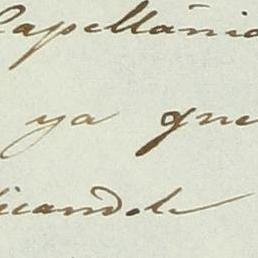 Capellania
ya que
licandole